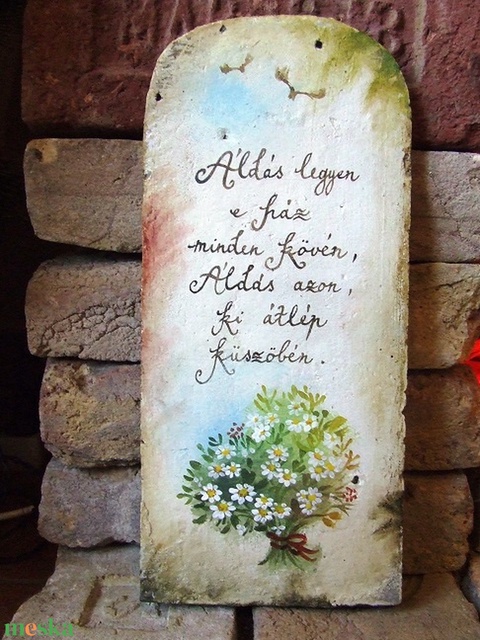 Áldás legyen
e ház
minden kövén,
Áldás azon,
ki átlép
küszöbén.
meska